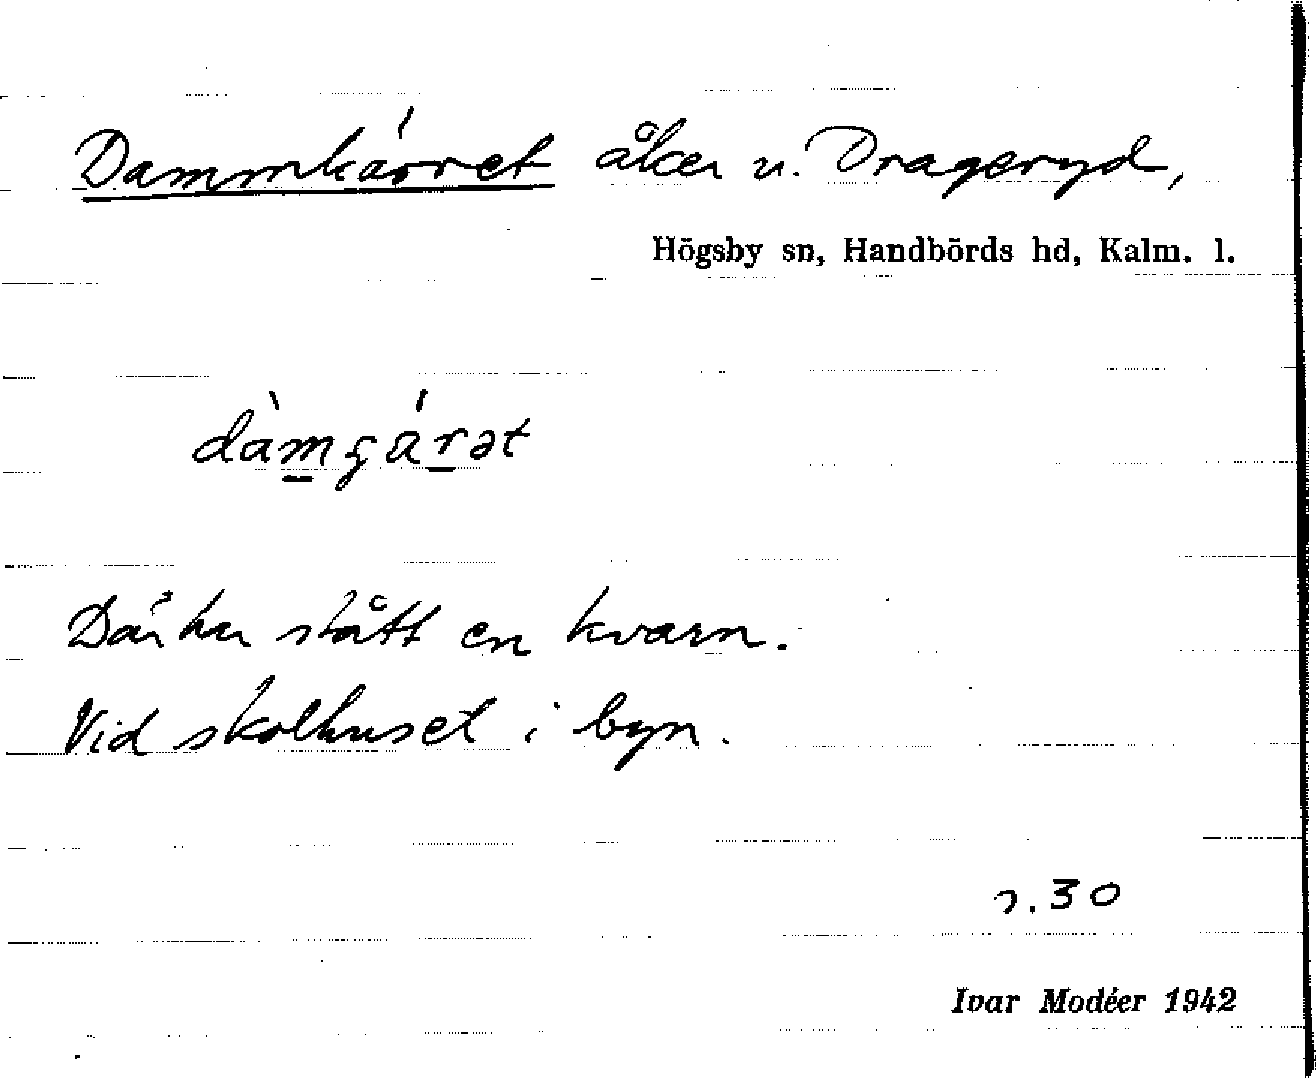 Dammkärret åker u. Drageryd,
Högsby sn, Handbörds hd, Kalm. l.
dàmçá̀rət
Där har stått en kvarn.
Vid skolhuset i byn.
s. 30
Ivar Modéer 1942